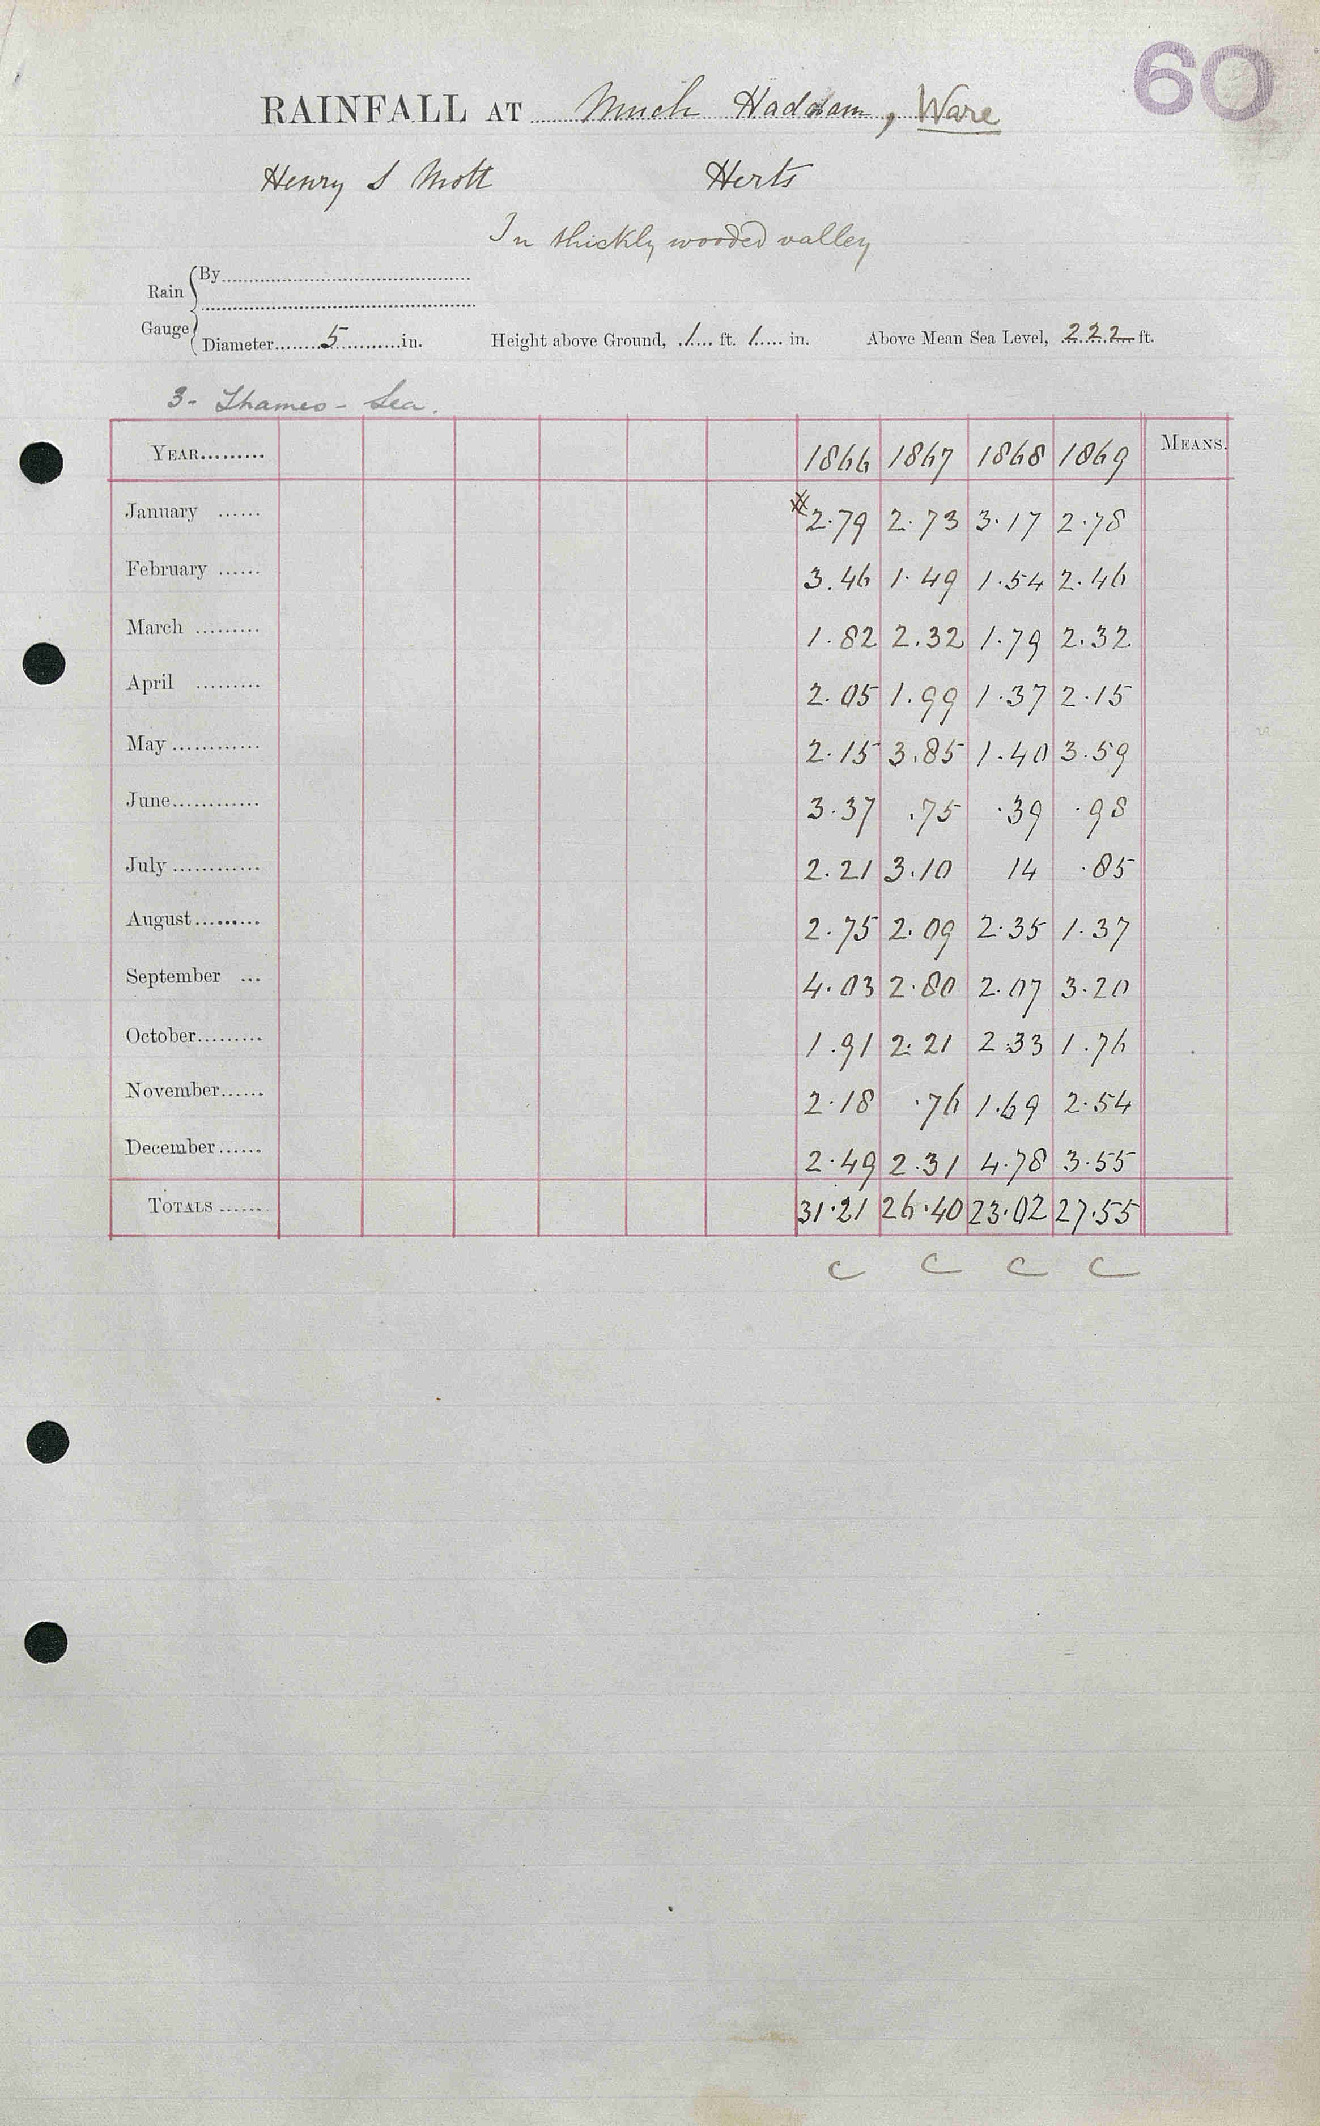 60
RAINFALL AT Much Hadham, Ware
Henry S Mott Herts
In thickly wooded valley
Rain Gauge { By
Diameter 5 in. Height above Ground, 1 ft. 1 in. Above Mean Sea Level, 222 ft.
3- Thames - Lea.
YEAR 1866 1867 1868 1869 MEANS.
January 2.79 2.73 3.17 2.78
February 3.46 1.49 1.54 2.46
March 1.82 2.32 1.79 2.32
April 2.05 1.99 1.37 2.15
May 2.15 3.85 1.40 3.59
June 3.37 .75 .39 .98
July 2.21 3.10 14 .85
August 2.75 2.09 2.35 1.37
September 4.03 2.80 2.07 3.20
October 1.91 2.21 2.33 1.76
November 2.18 .76 1.69 2.54
December 2.49 2.31 4.78 3.55
TOTALS 31.21 26.40 23.02 27.55
C C C C